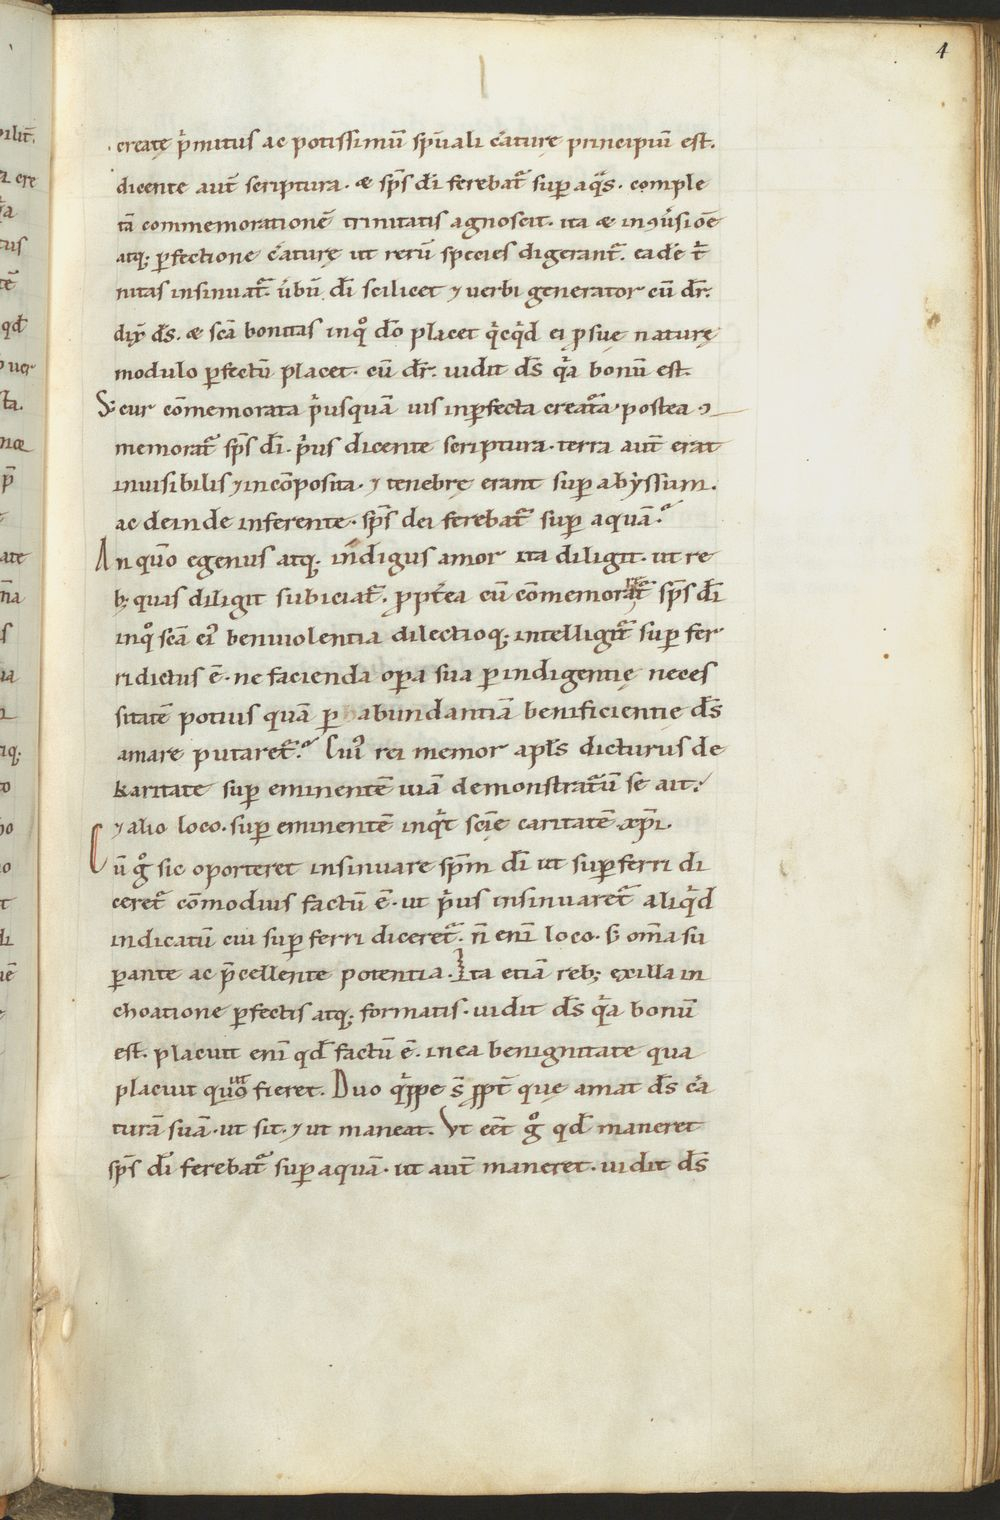 4
creatę p̍mitus ac potissimū sp̄uali c̍aturę principiū est.
dicente aut̄ scriptura. & sp̄s dī ferebat᷑ sup̱ aq̍s. comple
tā commemorationē trinitatis agnoscit. ita & in ꝯuˀsiōe
atq; p̱fectione c̍aturę ut rerū species digerant᷑. eadē t̍
nitas insinuat᷑. úbū dī scilicet ⁊ uerbi generator cū dr̄.
dix̄ ds̄. & scā bonitas in q̊ dō placet q̍cq̍d ei ꝓ suę naturę
modulo p̱fectū placet. cū dr̄. uidit ds̄ q̍a bonū est.
S; cur cōmemorata p̍usquā uis inp̱fecta creat᷑a. postea ꝯ
memorat᷑ sp̄s dī. p̍us dicente scriptura. terra aut̄ erat
inuisibilis ⁊ incōposita. ⁊ tenebrę erant sup̱ abyssum.
ac deinde inferente. sp̄s dei ferebat᷑ sup̱ aquā.
An quō egenus atq; indigus amor ita diligit. ut re
b; quas diligit subiciat᷑. ꝓpt̍ea cū cōmemorat᷑ sp̄s dī
in q̊ scā eiˀ beniuolentia dilectioq; intelligit᷑ sup̱ fer
ri dictus ē. ne facienda oꝑa sua p̱ indigentię neces
sitatē potius quā p̱ abundantiā benificientię ds̄
amare putaret᷑. Cuiˀ rei memor apls̄ dicturus de
karitate sup̱ eminentē uiā demonstrat᷑ū se ait.
⁊ alio loco. sup̱ eminentē inq̍t sciē caritatē xp̄i.
Cū g̊ sic oporteret insinuare sp̄m dī ut sup̱ferri di
ceret᷑ cōmodius factū ē. ut p̍us insinuaret᷑ aliq̍d
indicatū cui sup̱ ferri diceret᷑. n̄ enī loco. s; om̄a su
p̱ante ac p̄cellente potentia. Ita etiā reb; ex illa in
choatione p̱fectis atq; formatis. uidit ds̄ q̍a bonū
est. placuit enī qd̄ factū ē. in ea benignitate qua
placuit ut fieret. Duo q̍ppe s̄ ꝓpt̄ quę amat ds̄ c̍a
turā suā. ut sit. ⁊ ut maneat. Ut eēt g̊ qd̄ maneret
sp̄s dī ferebat᷑ sup̱ aquā. ut aut̄ maneret. uidit ds̄